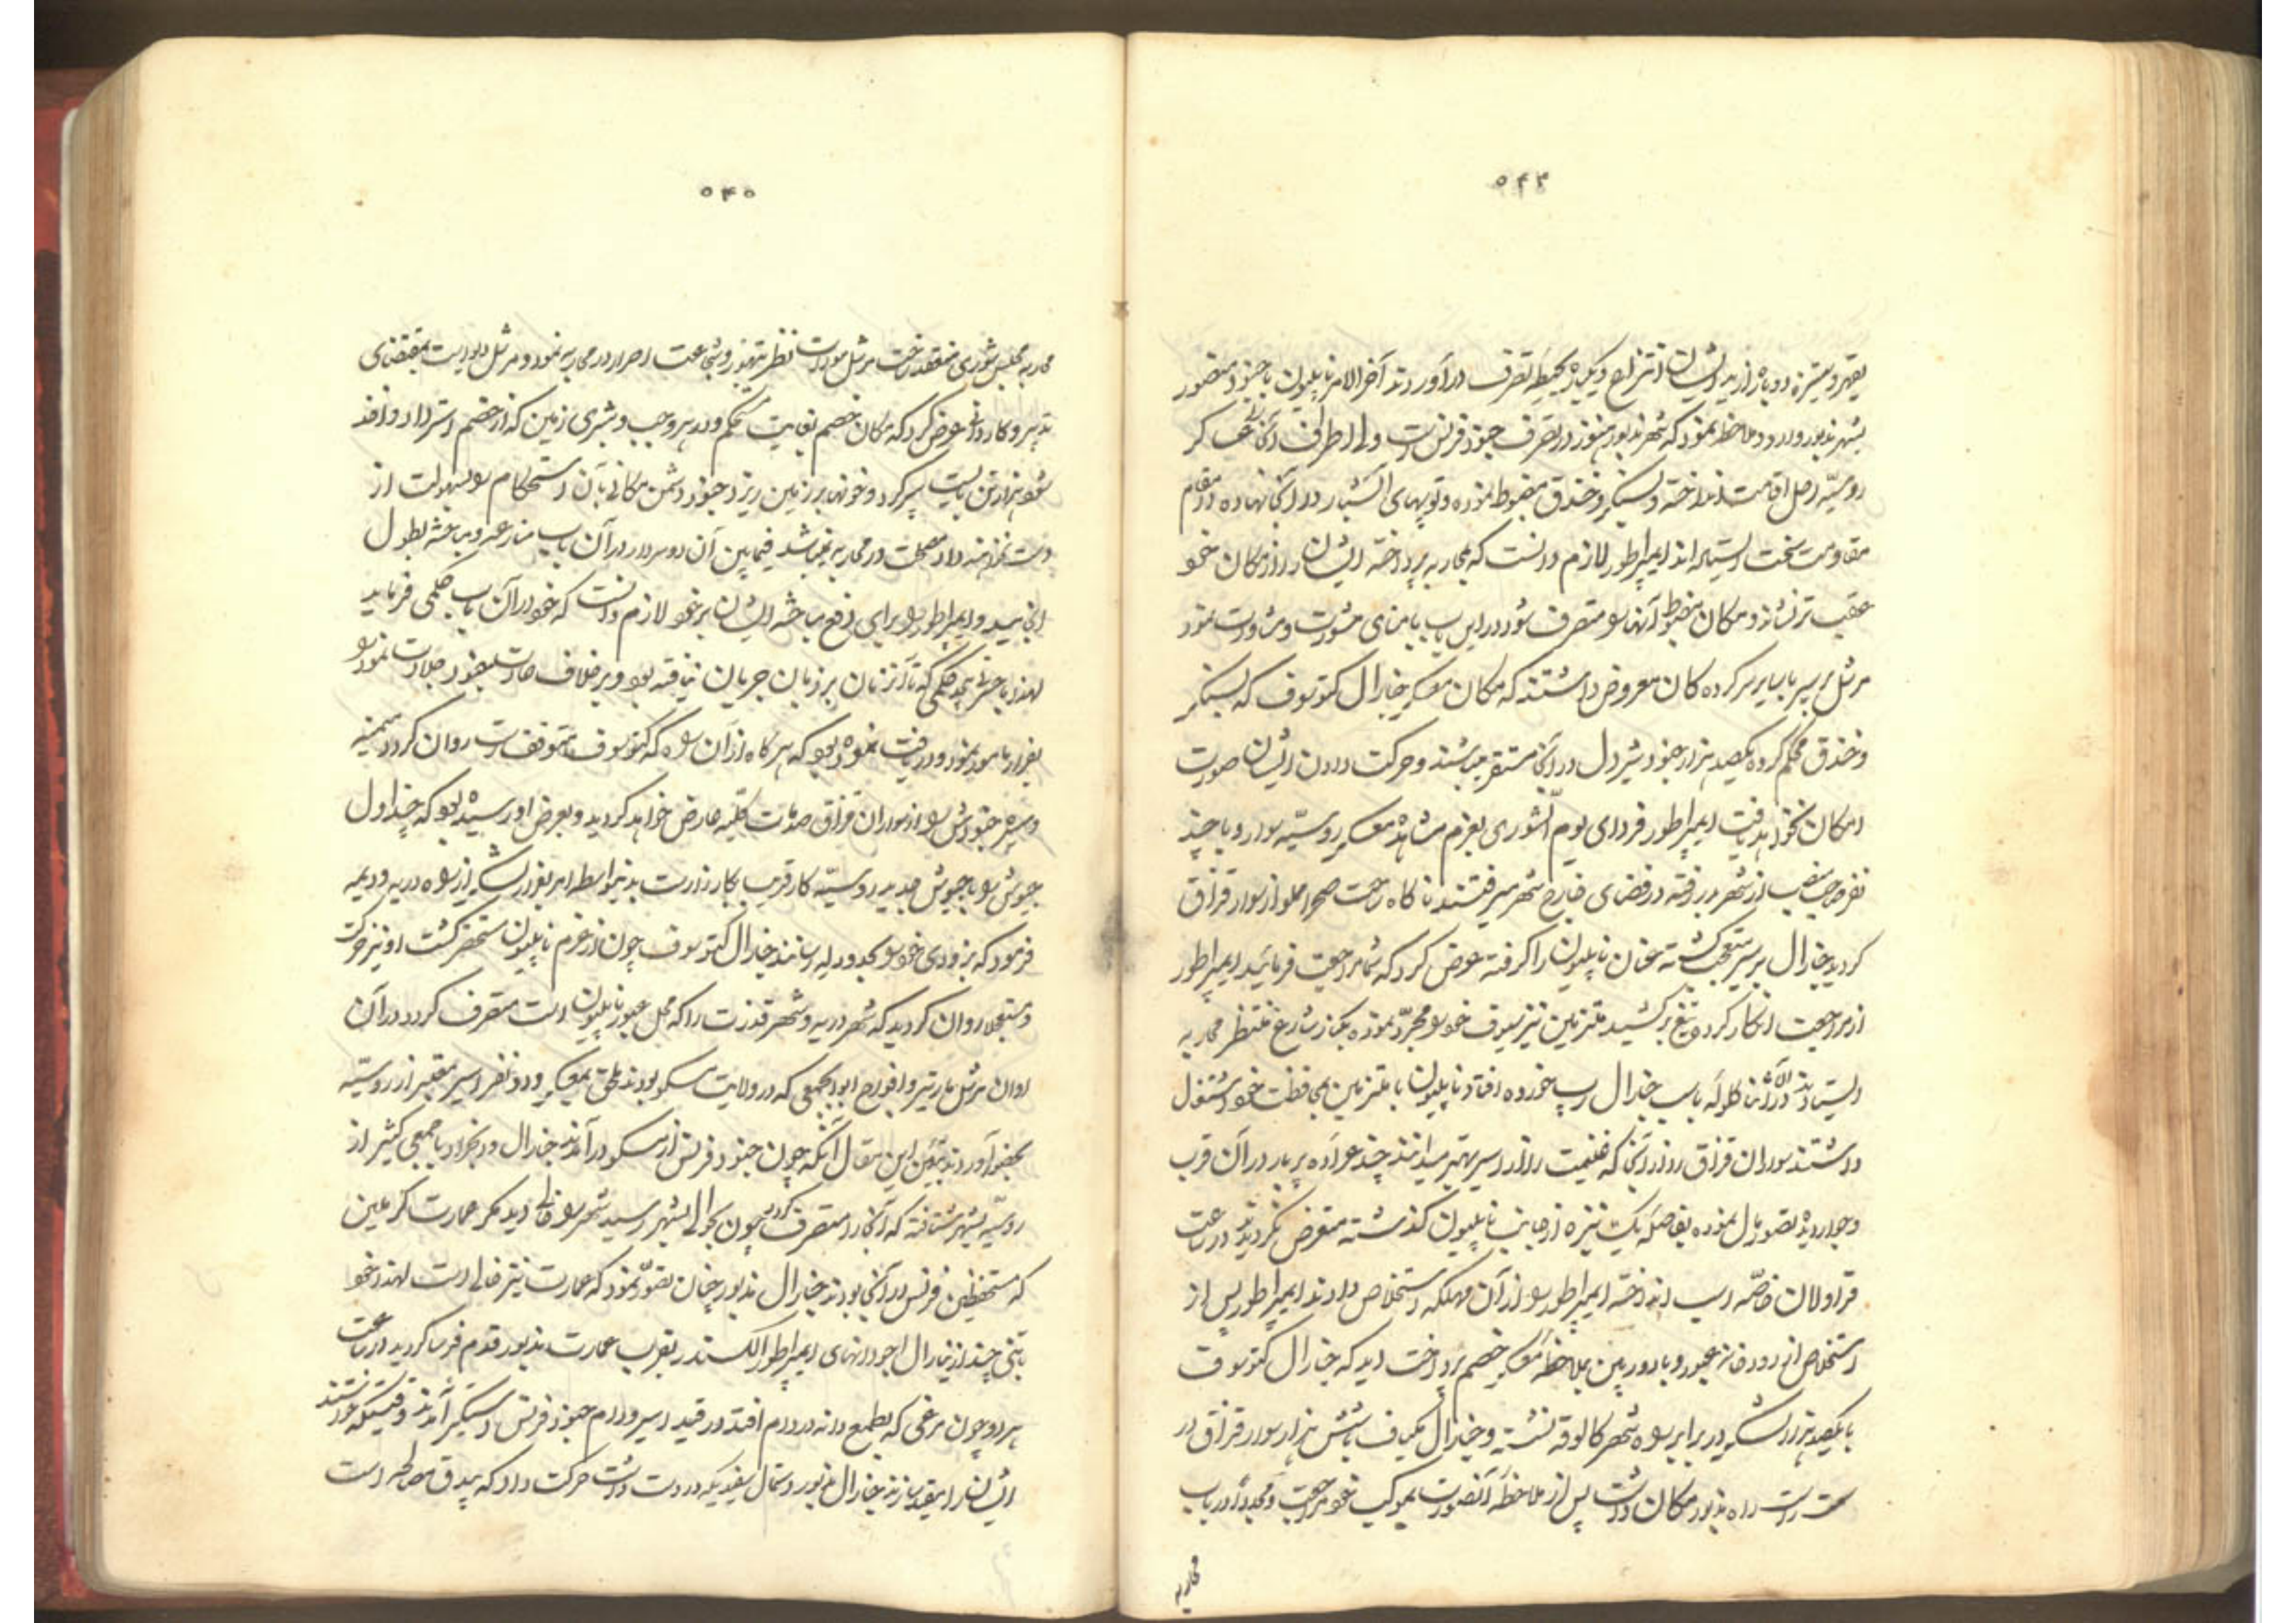 ۵۴۴
بقهر و ستیزه دوباره از ید ایشان انتزاع و یکباره بحیطه تصرف درآوردند آخر الامر ناپلیون با جنود منصور
بشهر مذبور وارد و ملاحظه نمود که شهر مذبور هنوز در تصرف جنود فرنس است ولی اطراف آنجا
روسیه رحل اقامت انداخته و سنگر و خندق مضبوط نموده و توپهای آتشبار در آنجا نهاده در مقام
مقاومت سخت ایستاده اند ایمپراطور لازم دانست که بمحاربه پرداخته ایشانرا از مکان خود
عقب تر نشاند و مکان مضبوط آنها را متصرف شود در این باب بنای مشورت و مشاورت نمود
مرشل برسیر با سایر سرکرده کان معروض داشتند که مکان معسکر جنرال کتوسوف که سنگر
و خندق محکم کرده یکصد هزار جنود شیردل در آنجا مستقر میباشند و حرکت دادن ایشان صورت
امکان نخواهد یافت ایمپراطور فردای یوم الشوری بعزم مشاهده معسکر روسیه سوار و با چند
نفر صاحب منصب از شهر در رفته در فضای خارج شهر میرفتند ناکاه ساحت صحرا مملو از سوار قزاق
کردید جنرال برسیر متعجب کشته عنان ناپلیون را کرفته عرض کرد که شما مراجعت فرمائید ایمپراطور
از مراجعت انکار کرده تیغ برکشید ملتزمین نیز سیوف خود را مجرد نموده بکنار شارع منتظر محاربه
ایستادند در اثنا کلوله باسب جنرال رپ خورده افتاد ناپلیون با ملتزمین بمحافظت خود اشتغال
داشتند سواران قزاق از آنجا که غنیمت را از اسیر بهتر میدانند چند عراده پربار در آن قرب
و جوار دیده تصور مال نموده بفاصله یک نیزه از جانب ناپلیون کذشته متعرض نکردیدند در ساعت
قراولان خاصه اسب انداخته ایمپراطور را از آن مهلکه استخلاص دادند ایمپراطور پس از
استخلاص از رودخانه عبور و با دوربین بملاحظه معسکر خصم پرداخت دید که جنرال کتوسوف
با یکصد هزار لشکر در برابر راه شهر کالوقه نشسته و جنرال پلیاف با شش هزار سوار قزاق در
سمت راست راه مذبور مکان داشت پس از ملاحظه آنصورت بموکب خود مراجعت و مجددا در باب
محاربه
۵۴۵
محاربه مجلس شوری منعقد ساخت مرشل مورات نظر بتهور و شجاعت اصرار در محاربه نمود و مرشل دیوایست بمقتضای
تدبیر و کاردانی عرض کرد که مکان خصم بغایت مستحکم و در هر وجب و شبری زمین که از خصم استرداد و اخذ
شود هزار تن بایست سپر کرد و خونها بر زمین ریزد و جنود دشمن مکانی بآن استحکام را بسهولت از
دست نخواهند داد مصلحت در محاربه نمیباشد فیمابین آن دو سردار در آن باب منازعه و مباحثه بطول
انجامید و ایمپراطور برای رفع مباحثه ایشان بر خود لازم دانست که خود در آن باب حکمی فرماید
لهذا باحضار حکمی که تا آنزمان بر زبان جریان نیافته بود و بر خلاف عادت جنود جلادت نمود را
بفرار مامور نمود و دریافت نموده بود که هر کاه از آن راه که کتوسوف متوقف است روان کردد میمنه
و میسره جنودش را از سواران قزاق صدمات کلیه عارض خواهد کردید و بعرض او رسیده بود که چنداول
جیوش را با جیوش جدید روسیه کار قریب بکارزار است بدینواسطه امر بفرار لشکر از راه دریه و دیمه
فرمود که بزودی خود را بحدود لیه رسانند جنرال کتوسوف چون از عزم ناپلیون مستحضر کشت او نیز حرکت
و مستعجلا روان کردید که شهر دریه و شهر قذزت را که محل عبور ناپلیون است متصرف کردد در آن
اوان مرشل مارتیر و افواج ابوابجمعی که در ولایت مسکو بودند ملحق بمعسکر و دو نفر اسیر معتبر از روسیه
بحضور آوردند تبیین این مقال آنکه چون جنود فرنس از مسکو درآمدند جنرال ونجراد با جمعی کثیر از
روسیه بشهر شتافته که آنجا را متصرف کردد چون بحوالی شهر رسید شهر را خالی دید مکر عمارت کرملین
که مستحفظین فرنس در آنجا بودند جنرال مذبور چنان تصور نمود که عمارت نیز خالی است لهذا خود
با تنی چند از جنرال اجودانهای ایمپراطور الکسندر بقرب عمارت مذبور قدم فرسا کردید در ساعت
هر دو چون مرغی که بطمع دانه در دام افتد در قید اسیر و دام جنود فرنس دستکیر آمدند وقتیکه خواستند
ایشانرا مقید سازند جنرال مذبور دستمال سفیدیکه در دست داشت حرکت داد که بیدق مصالحه است